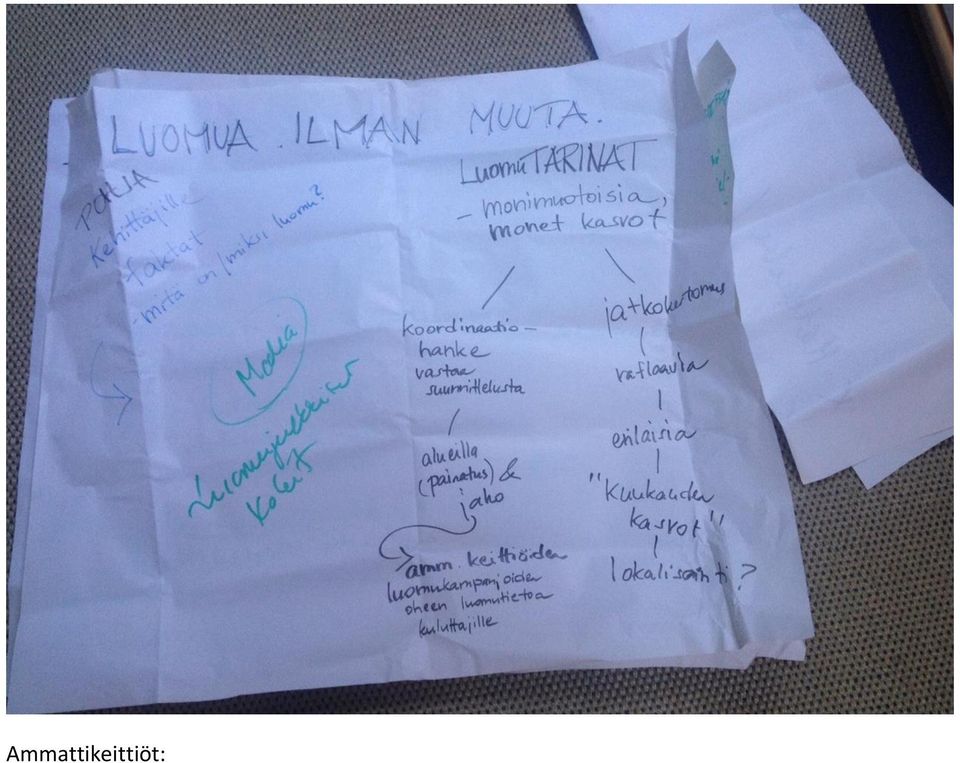 LUOMUA. ILMAN MUUTA.
LuomuTARINAT
- monimuotoisia,
monet kasvot
POHJA
kehittäjille
faktat
- mitä on / miksi luomu?
Media
kokit
koordinaatio-
hanke
vastaa
suunnittelusta
alueilla
(painatus) &
jako
amm. keittiöiden
luomukampanjoiden
oheen luomutietoa
kuluttajille
jatkokertomus
raflaavia
erilaisia
"kuukauden
kasvot"
lokalisointi?
Ammattikeittiöt: